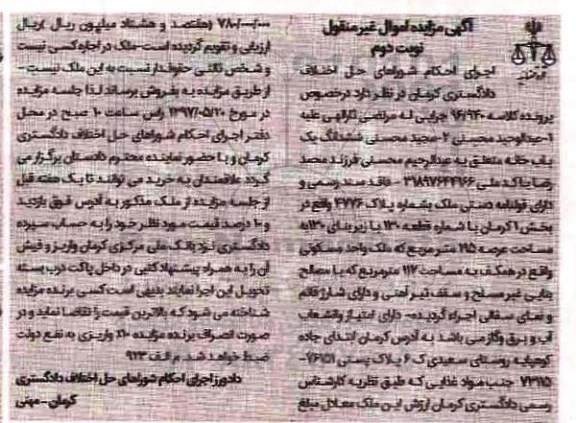 آگهی مزایده اموال غیر منقول
نوبت دوم
اجرای احکام شوراهای حل اختلاف
دادگستری کرمان در نظر دارد درخصوص
پرونده کلاسه ۹۶/۹۳۰ جرایی له مرتضی علیه
۱-عبدالوحید محسنی ۲-مجید محسنی ششدانگ یک
باب خانه متعلق به عبدالرحیم محسنی فرزند محمد
رضا با کد ملی - فاقد سند رسمی و
دارای قولنامه دستی ملک بشماره پلاک ۴۷۷۶ واقع در
بخش ۱ کرمان با شماره قطعه ۱۳۰ با زیربنای ۱۳۰ به
مساحت عرصه ۱۹۵ متر مربع که ملک واحد مسکونی
واقع در همکف به مساحت ۱۱۷ مترمربع که با مصالح
بنایی غیر مسلح و سقف تیر آهنی و دارای شناژ قائم
و نمای سفالی اجراء گردیده- دارای امتیاز وانشعاب
آب و برق وگاز می باشد به آدرس کرمان ابتدای جاده
کوهپایه روستای سعیدی ک ۶ پلاک پستی ۷۶۱۵۱-
جنب مواد غذایی که طبق نظریه کارشناس
رسمی دادگستری کرمان ارزش این ملک معادل مبلغ
۷۸۰/۰۰۰/۰۰۰ (هفتصد و هشتاد میلیون ریال )ریال
ارزیابی و تقویم گردیده است-ملک در اجاره کسی نیست
و شخص ثالثی حقوقدار نسبت به این ملک نیست -
از طریق مزایده به بفروش برساند لذا جلسه مزایده
در مورخ ۱۳۹۷/۰۵/۲۰ راس ساعت ۱۰ صبح در محل
دفتر اجرای احکام شوراهای حل اختلاف دادگستری
کرمان و با حضور نماینده محترم دادستان برگزار می
گردد علاقمندان به خرید می توانند تا یک هفته قبل
از جلسه مزایده از ملک مذکور به آدرس فوق بازدید
و ۱۰ درصد قیمت مورد نظر خود را به حساب سپرده
دادگستری نزد بانک ملی مرکزی کرمان واریز و فیش
آن را به همراه پیشنهاد کتبی در داخل پاکت درب بسته
تحویل این اجرا نمایند بدیهی است کسی برنده مزایده
شناخته می شود که بالاترین قیمت را تقاضا نماید و در
صورت انصراف برنده مزایده ۱۰٪ واریزی به نفع دولت
ضبط خواهد شد. م الف ۹۲۳
دادورز اجرای احکام شوراهای حل اختلاف دادگستری
کرمان - مهنی